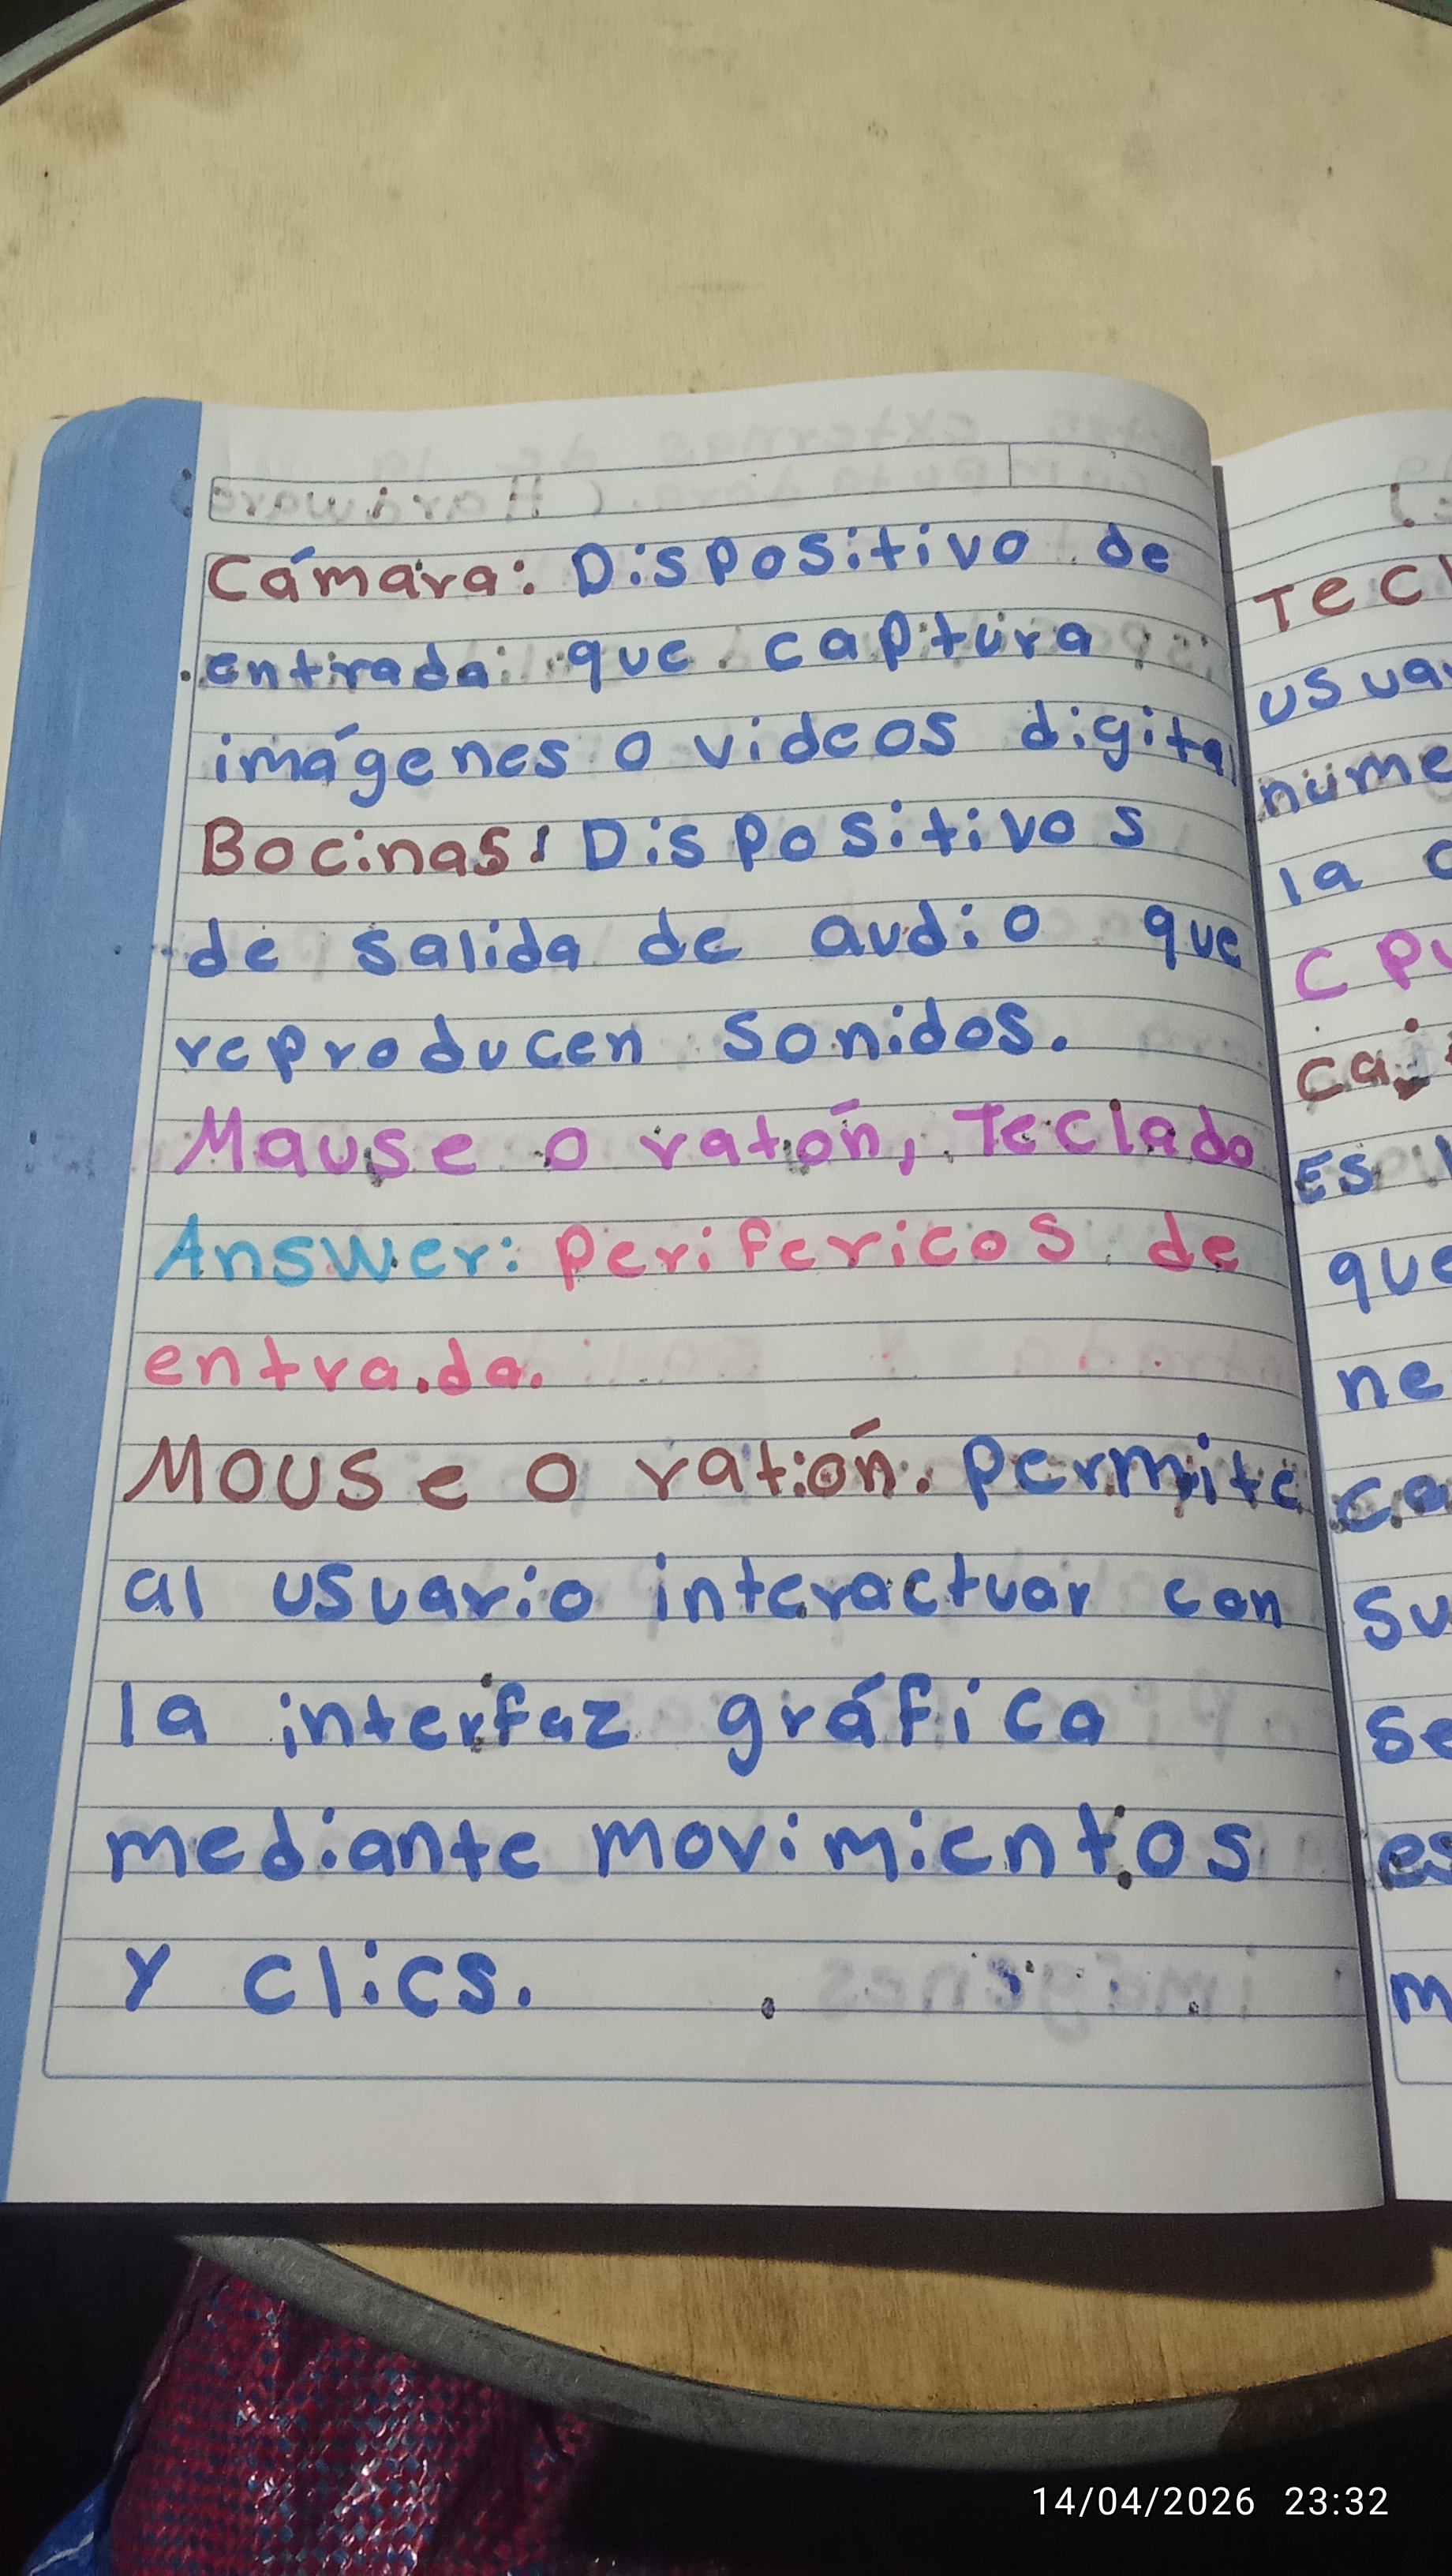 Cámara: Dispositivo de
entrada que captura
imágenes o videos digital
Bocinas: Dispositivos
de salida de audio que
reproducen sonidos.
Mause o ratón, Teclado
Answer: Perifericos de
entrada.
Mouse o ratón. Permite
al usuario interactuar con
la interfaz gráfica
mediante movimientos
y clics.
usua
nume
la c
CPU
Es
que
ne
ca
su
se
es
m
14/04/2026 23:32